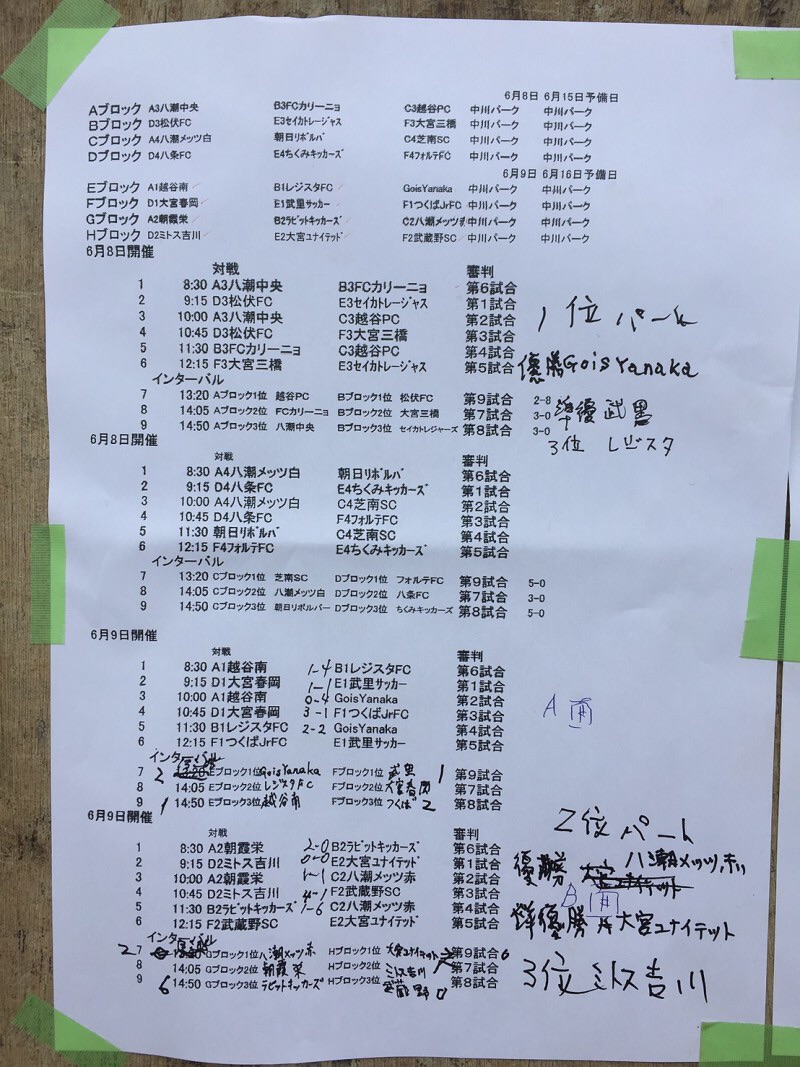 6月8日 6月15日予備日
Aブロック A3八潮中央 B3FCカリーニョ C3越谷PC 中川パーク 中川パーク
Bブロック D3松伏FC E3セイカトレージャス F3大宮三橋 中川パーク 中川パーク
Cブロック A4八潮メッツ白 朝日リボルバ C4芝南SC 中川パーク 中川パーク
Dブロック D4八条FC E4ちくみキッカーズ F4フォルテFC 中川パーク 中川パーク
6月9日 6月16日予備日
Eブロック A1越谷南 B1レジスタFC GoisYanaka 中川パーク 中川パーク
Fブロック D1大宮春岡 E1武里サッカー F1つくばJrFC 中川パーク 中川パーク
Gブロック A2朝霞栄 B2ラビットキッカーズ C2八潮メッツ 中川パーク 中川パーク
Hブロック D2ミトス吉川 E2大宮ユナイテッド F2武蔵野SC 中川パーク 中川パーク
6月8日開催
対戦 審判
1 8:30 A3八潮中央 B3FCカリーニョ 第6試合
2 9:15 D3松伏FC E3セイカトレージャス 第1試合
3 10:00 A3八潮中央 C3越谷PC 第2試合
4 10:45 D3松伏FC F3大宮三橋 第3試合
5 11:30 B3FCカリーニョ C3越谷PC 第4試合
6 12:15 F3大宮三橋 E3セイカトレージャス 第5試合
インターバル
7 13:20 Aブロック1位 越谷PC Bブロック1位 松伏FC 第9試合 2-8
8 14:05 Aブロック2位 FCカリーニョ Bブロック2位 大宮三橋 第7試合 3-0
9 14:50 Aブロック3位 八潮中央 Bブロック3位 セイカトレジャーズ 第8試合 3-0
1位パート
優勝GoisYanaka
準優 武里
3位 レジスタ
6月8日開催
対戦 審判
1 8:30 A4八潮メッツ白 朝日リボルバ 第6試合
2 9:15 D4八条FC E4ちくみキッカーズ 第1試合
3 10:00 A4八潮メッツ白 C4芝南SC 第2試合
4 10:45 D4八条FC F4フォルテFC 第3試合
5 11:30 朝日リボルバ C4芝南SC 第4試合
6 12:15 F4フォルテFC E4ちくみキッカーズ 第5試合
インターバル
7 13:20 Cブロック1位 芝南SC Dブロック1位 フォルテFC 第9試合 5-0
8 14:05 Cブロック2位 八潮メッツ白 Dブロック2位 八条FC 第7試合 3-0
9 14:50 Cブロック3位 朝日リボルバー Dブロック3位 ちくみキッカーズ 第8試合 5-0
6月9日開催
対戦 審判
1 8:30 A1越谷南 1-4 B1レジスタFC 第6試合
2 9:15 D1大宮春岡 1-1 E1武里サッカー 第1試合
3 10:00 A1越谷南 0-4 GoisYanaka 第2試合
4 10:45 D1大宮春岡 3-1 F1つくばJrFC 第3試合
5 11:30 B1レジスタFC 2-2 GoisYanaka 第4試合
6 12:15 F1つくばJrFC E1武里サッカー 第5試合
A面
インターバル
7 2 Eブロック1位 GoisYanaka Fブロック1位 武里 1 第9試合
8 14:05 Eブロック2位 レジスタFC Fブロック2位 大宮春岡 第7試合
9 1 14:50 Eブロック3位 越谷南 Fブロック3位 つくば 2 第8試合
6月9日開催
対戦 審判
1 8:30 A2朝霞栄 2-0 B2ラビットキッカーズ 第6試合
2 9:15 D2ミトス吉川 0-0 E2大宮ユナイテッド 第1試合
3 10:00 A2朝霞栄 1-1 C2八潮メッツ赤 第2試合
4 10:45 D2ミトス吉川 4-1 F2武蔵野SC 第3試合
5 11:30 B2ラビットキッカーズ 1-6 C2八潮メッツ赤 第4試合
6 12:15 F2武蔵野SC E2大宮ユナイテッド 第5試合
インターバル
2 7 Gブロック1位 八潮メッツ赤 Hブロック1位 大宮ユナイテット 第9試合 0
8 14:05 Gブロック2位 朝霞栄 Hブロック2位 ミトス吉川 第7試合
9 6 14:50 Gブロック3位 ラビットキッカーズ Hブロック3位 武蔵野 0 第8試合
2位パート
優勝 八潮メッツ赤
B面
準優勝 大宮ユナイテット
3位 ミトス吉川